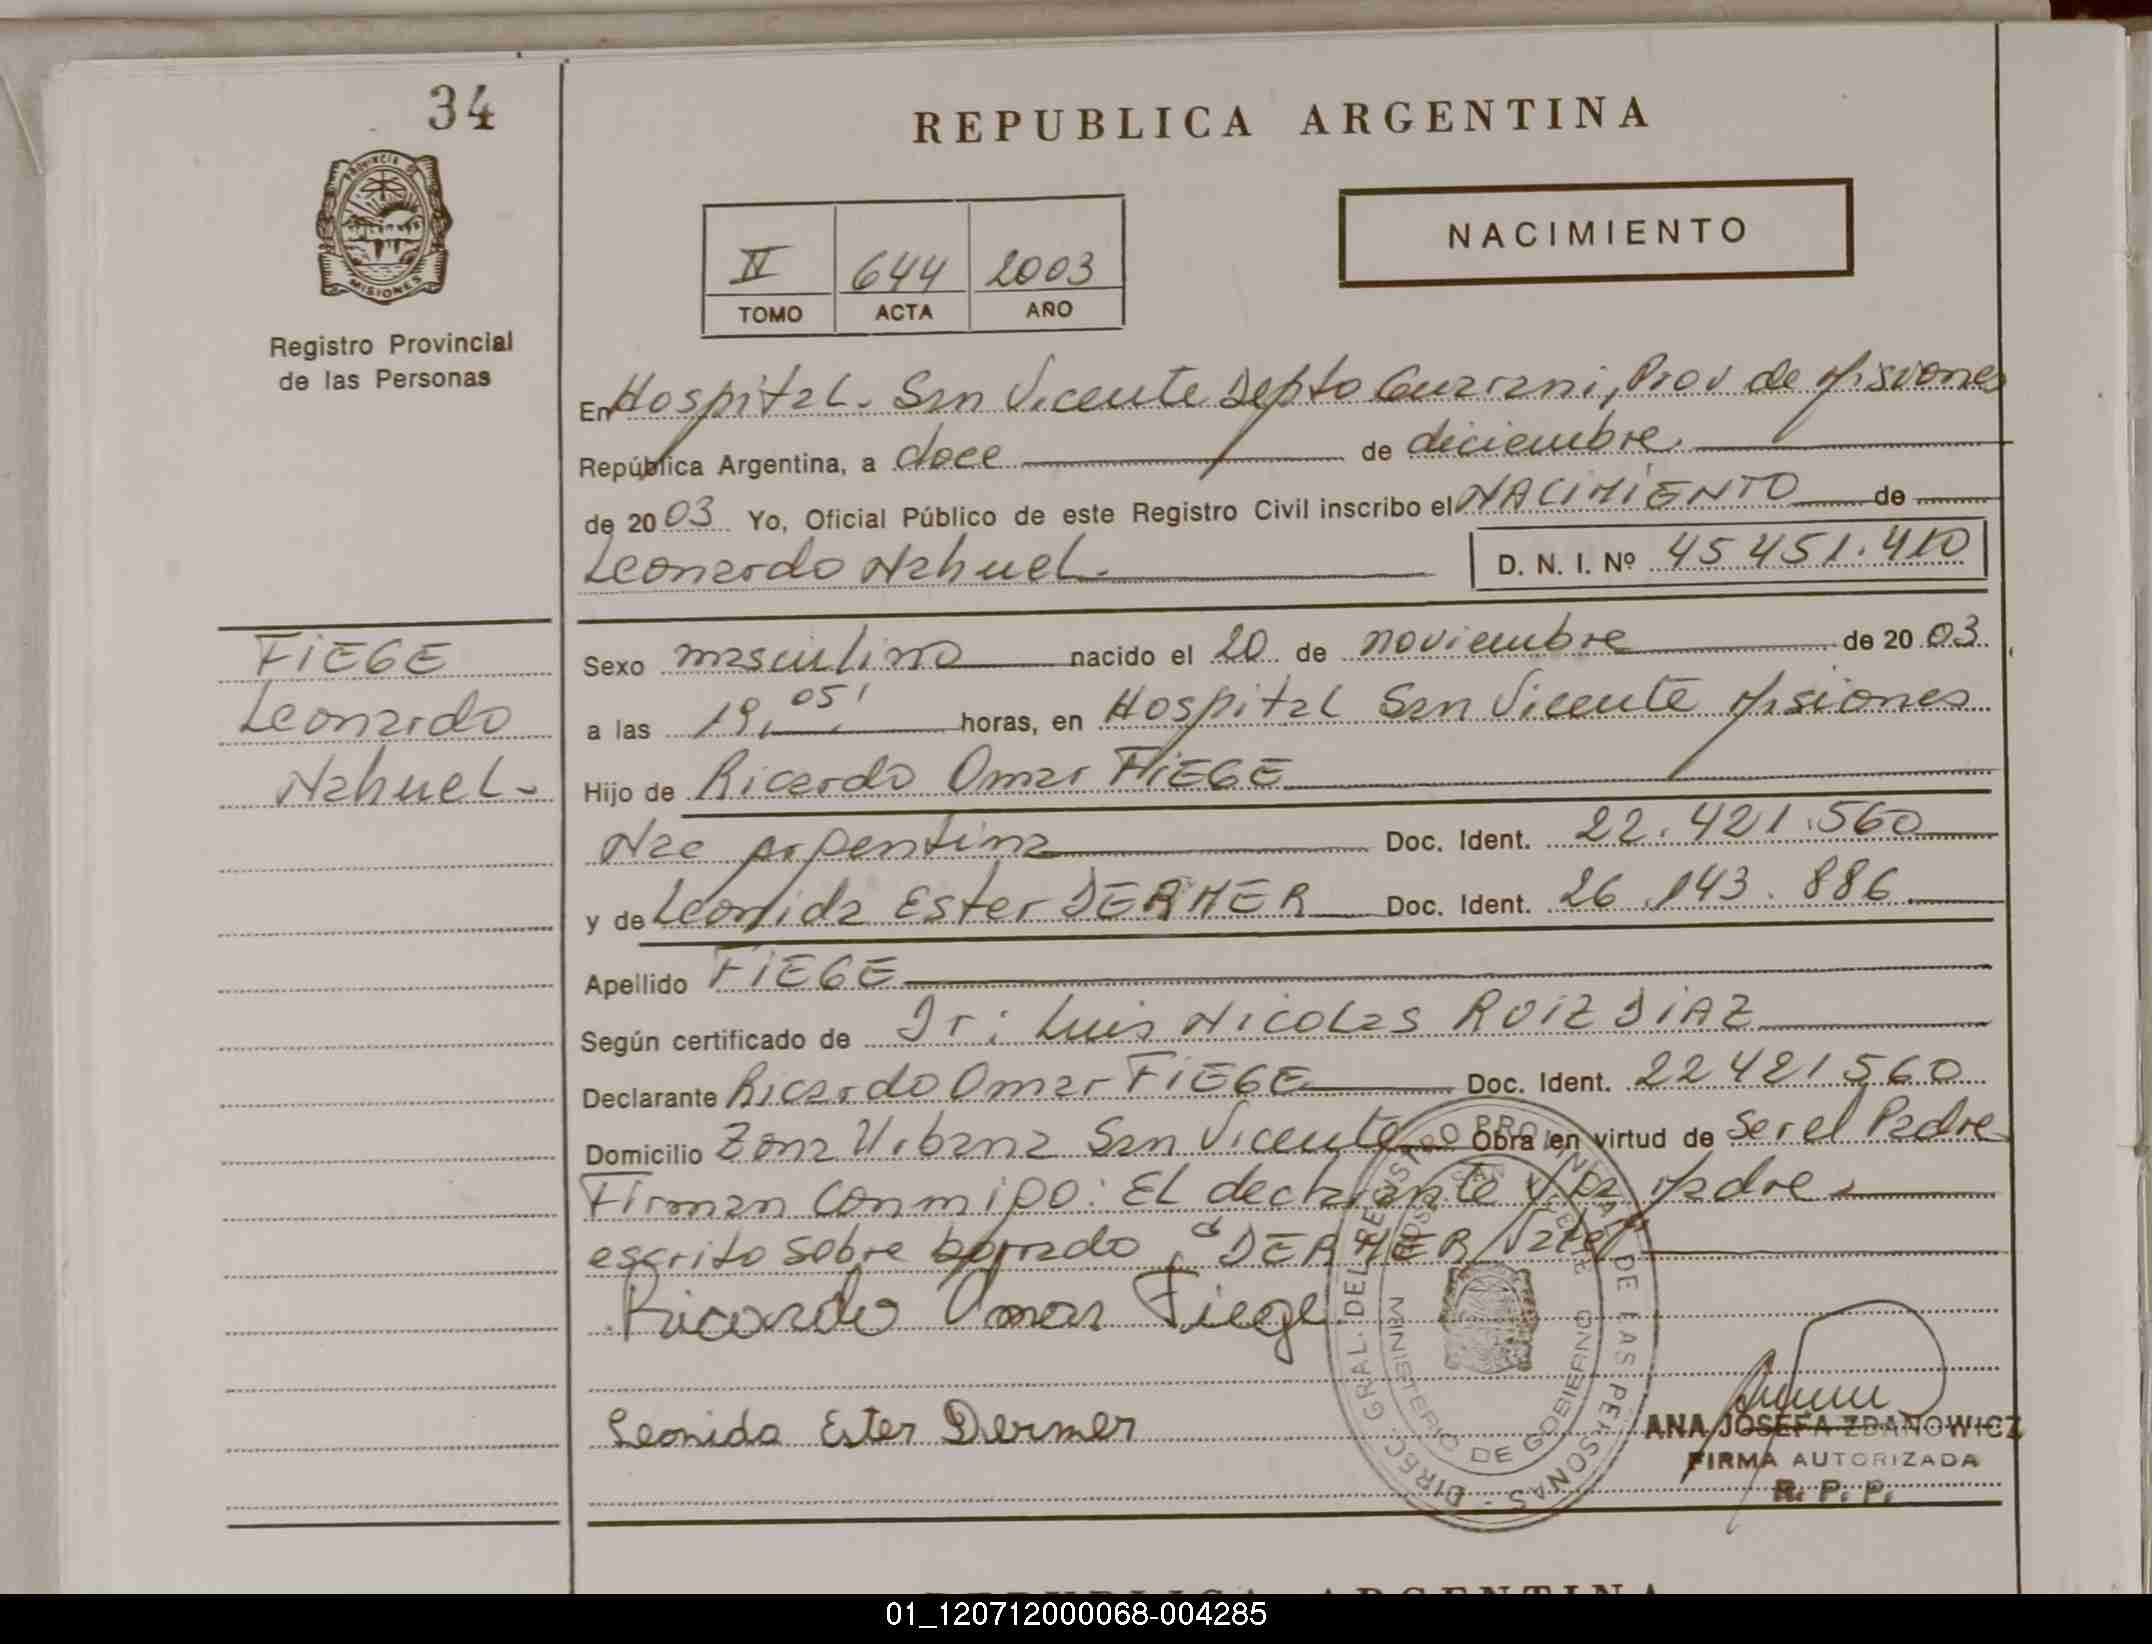 34
REPUBLICA ARGENTINA
PROVINCIA DE
MISIONES
Registro Provincial
de las Personas
NACIMIENTO
IV 644 2003
TOMO ACTA AÑO
En Hospital. San Vicente Depto Guarani, Prov de Misiones
República Argentina, a doce de diciembre.
de 2003 Yo, Oficial Público de este Registro Civil inscribo el NACIMIENTO de
Leonardo Nahuel. D. N. I. Nº 45451.410
FIEGE
Leonardo
Nahuel-
Sexo masculino nacido el 20 de noviembre de 2003.
a las 19,05' horas, en Hospital San Vicente Misiones
Hijo de Ricardo Omar FIEGE
Nac argentina Doc. Ident. 22.421.560
y de Leonida Ester DERMER Doc. Ident. 26.143.886
Apellido FIEGE
Según certificado de Dr: Luis Nicolas RUIZ DIAZ
Declarante Ricardo Omar FIEGE Doc. Ident. 22421560
Domicilio Zona Urbana San Vicente Obra en virtud de ser el Padre
Firman conmigo: El declarante y la Madre.
escrito sobre borrado, DERMER Vale
Ricardo Omar Fiege
Leonida Ester Dermer
DIREC. GRAL. DEL REGISTRO PROVINCIAL DE LAS PERSONAS -
MINISTERIO DE GOBIERNO
ANA JOSEFA ZDANOWICZ
FIRMA AUTORIZADA
R. P. P.
REPUBLICA ARGENTINA
01_120712000068-004285